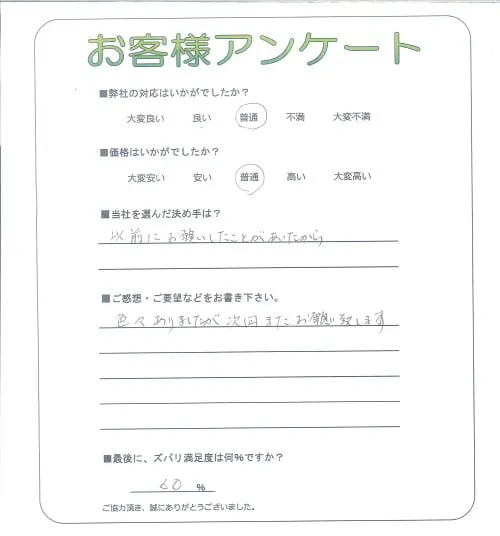 お客様アンケート
■弊社の対応はいかがでしたか？
大変良い 良い 普通 不満 大変不満
■価格はいかがでしたか？
大変安い 安い 普通 高い 大変高い
■当社を選んだ決め手は？
以前にお願いしたことがあったから
■ご感想・ご要望などをお書き下さい。
色々ありましたが次回またお願い致します
■最後に、ズバリ満足度は何%ですか？
60 %
ご協力頂き、誠にありがとうございました。